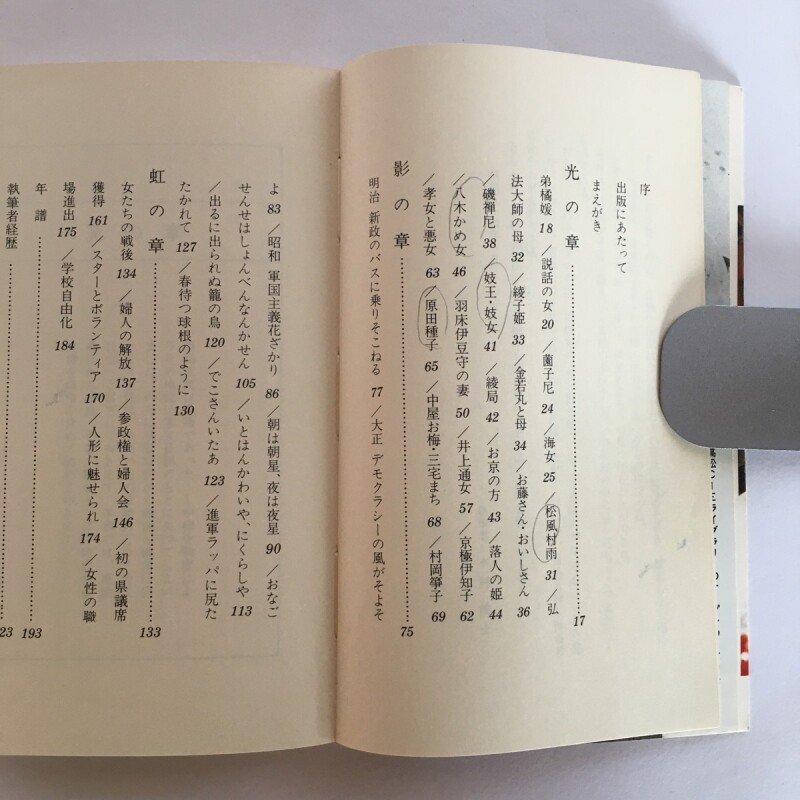 序
出版にあたって
まえがき
光の章……17
弟橘媛 18 ／説話の女 20 ／薗子尼 24 ／海女 25 ／松風村雨 31 ／弘
法大師の母 32 ／綾子姫 33 ／金若丸と母 34 ／お藤さん・おいしさん 36
／磯禅尼 38 ／妓王・妓女 41 ／綾局 42 ／お京の方 43 ／落人の姫 44
／八木かめ女 46 ／羽床伊豆守の妻 50 ／井上通女 57 ／京極伊知子 62
／孝女と悪女 63 ／原田種子 65 ／中屋お梅・三宅まち 68 ／村岡箏子 69
影の章……75
明治 新政のバスに乗りそこねる 77 ／大正 デモクラシーの風がそよそ
よ 83 ／昭和 軍国主義花ざかり 86 ／朝は朝星、夜は夜星 90 ／おなご
せんせはしょんべんなんかせん 105 ／いとはんかわいや、にくらしや 113
／出るに出られぬ籠の鳥 120 ／でこさんいたあ 123 ／進軍ラッパに尻た
たかれて 127 ／春待つ球根のように 130
虹の章……133
女たちの戦後 134 ／婦人の解放 137 ／参政権と婦人会 146 ／初の県議席
獲得 161 ／スターとボランティア 170 ／人形に魅せられ 174 ／女性の職
場進出 175 ／学校自由化 184
年譜……193
執筆者経歴……23